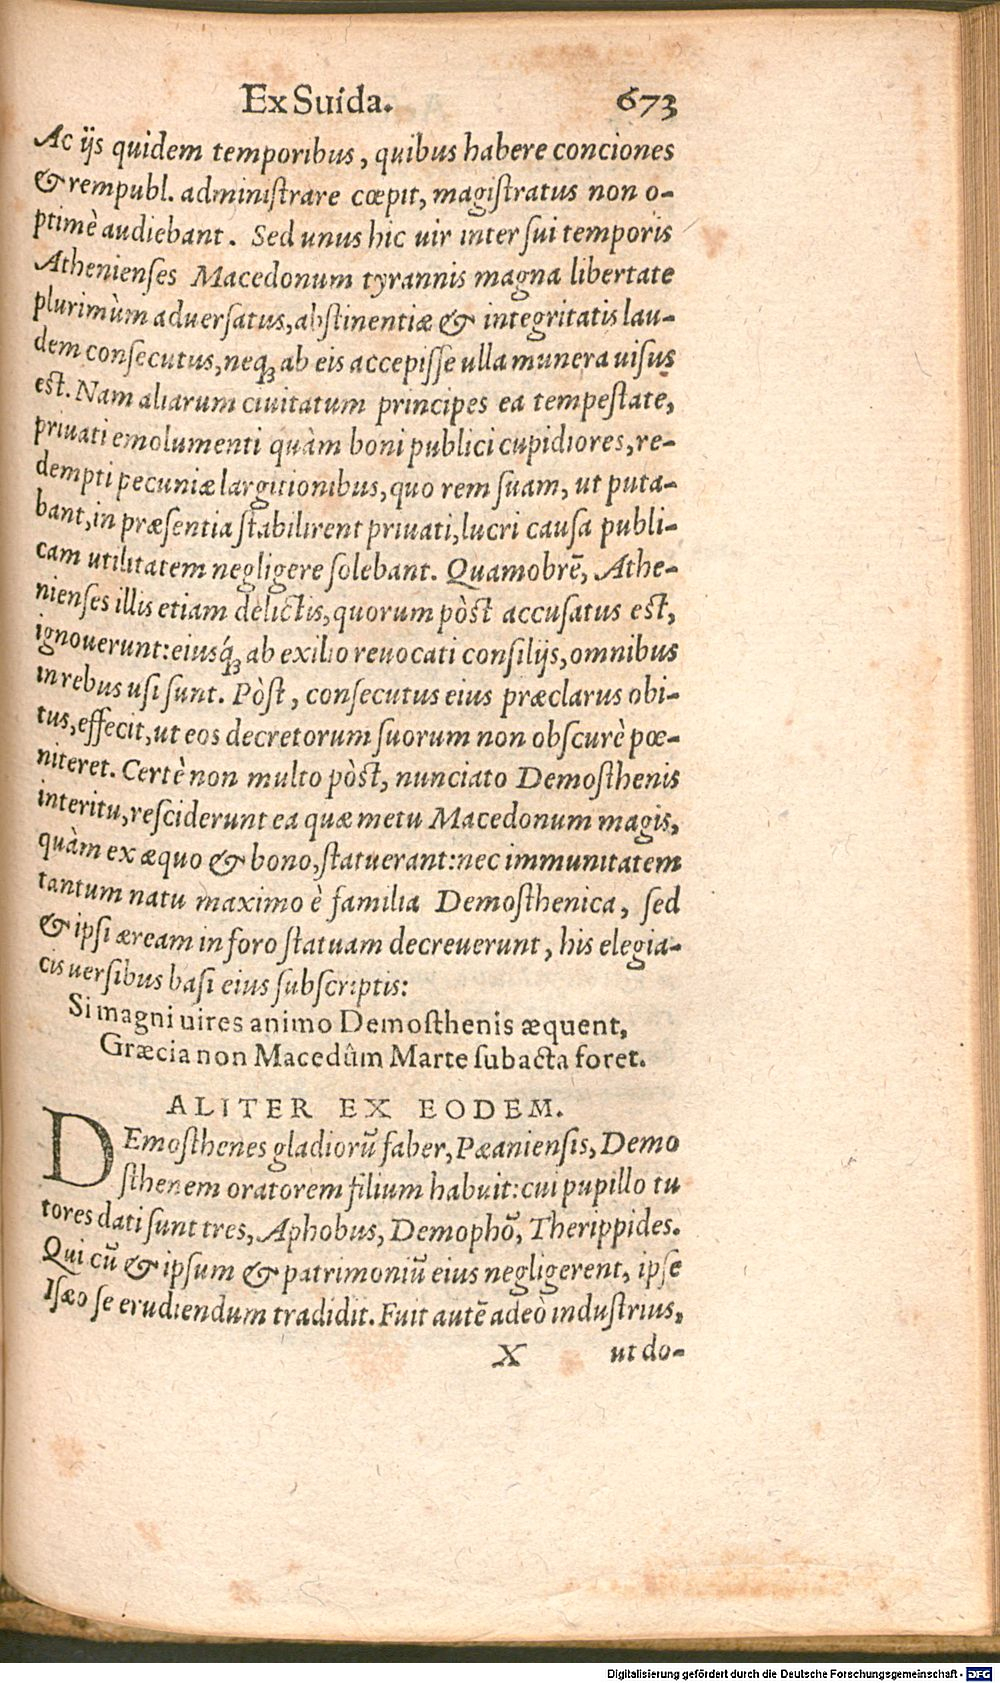 Ex Suida. 673
Ac ijs quidem temporibus, quibus habere conciones
& rempubl. administrare cœpit, magistratus non o-
ptimè audiebant. Sed unus hic uir inter sui temporis
Athenienses Macedonum tyrannis magna libertate
plurimùm aduersatus, abstinentiæ & integritatis lau-
dem consecutus, neqꝫ ab eis accepisse ulla munera uisus
est. Nam aliarum ciuitatum principes ea tempestate,
priuati emolumenti quàm boni publici cupidiores, re-
dempti pecuniæ largitionibus, quo rem suam, ut puta-
bant, in præsentia stabilirent priuati, lucri causa publi-
cam utilitatem negligere solebant. Quamobrē, Athe-
nienses illis etiam delictis, quorum pòst accusatus est,
ignouerunt: eiusq́ꝫ ab exilio reuocati consilijs, omnibus
in rebus usi sunt. Pòst, consecutus eius præclarus obi-
tus, effecit, ut eos decretorum suorum non obscurè pœ-
niteret. Certè non multo pòst, nunciato Demosthenis
interitu, resciderunt ea quæ metu Macedonum magis,
quàm ex æquo & bono, statuerant: nec immunitatem
tantum natu maximo è familia Demosthenica, sed
& ipsi æream in foro statuam decreuerunt, his elegia-
cis uersibus basi eius subscriptis:
Si magni uires animo Demosthenis æquent,
Græcia non Macedûm Marte subacta foret.
ALITER EX EODEM.
DEmosthenes gladiorū faber, Pæaniensis, Demo
sthenem oratorem filium habuit: cui pupillo tu
tores dati sunt tres, Aphobus, Demophō, Therippides.
Qui cū & ipsum & patrimoniū eius negligerent, ipse
Isæo se erudiendum tradidit. Fuit autē adeò industrius,
X ut do-
Digitalisierung gefördert durch die Deutsche Forschungsgemeinschaft - DFG